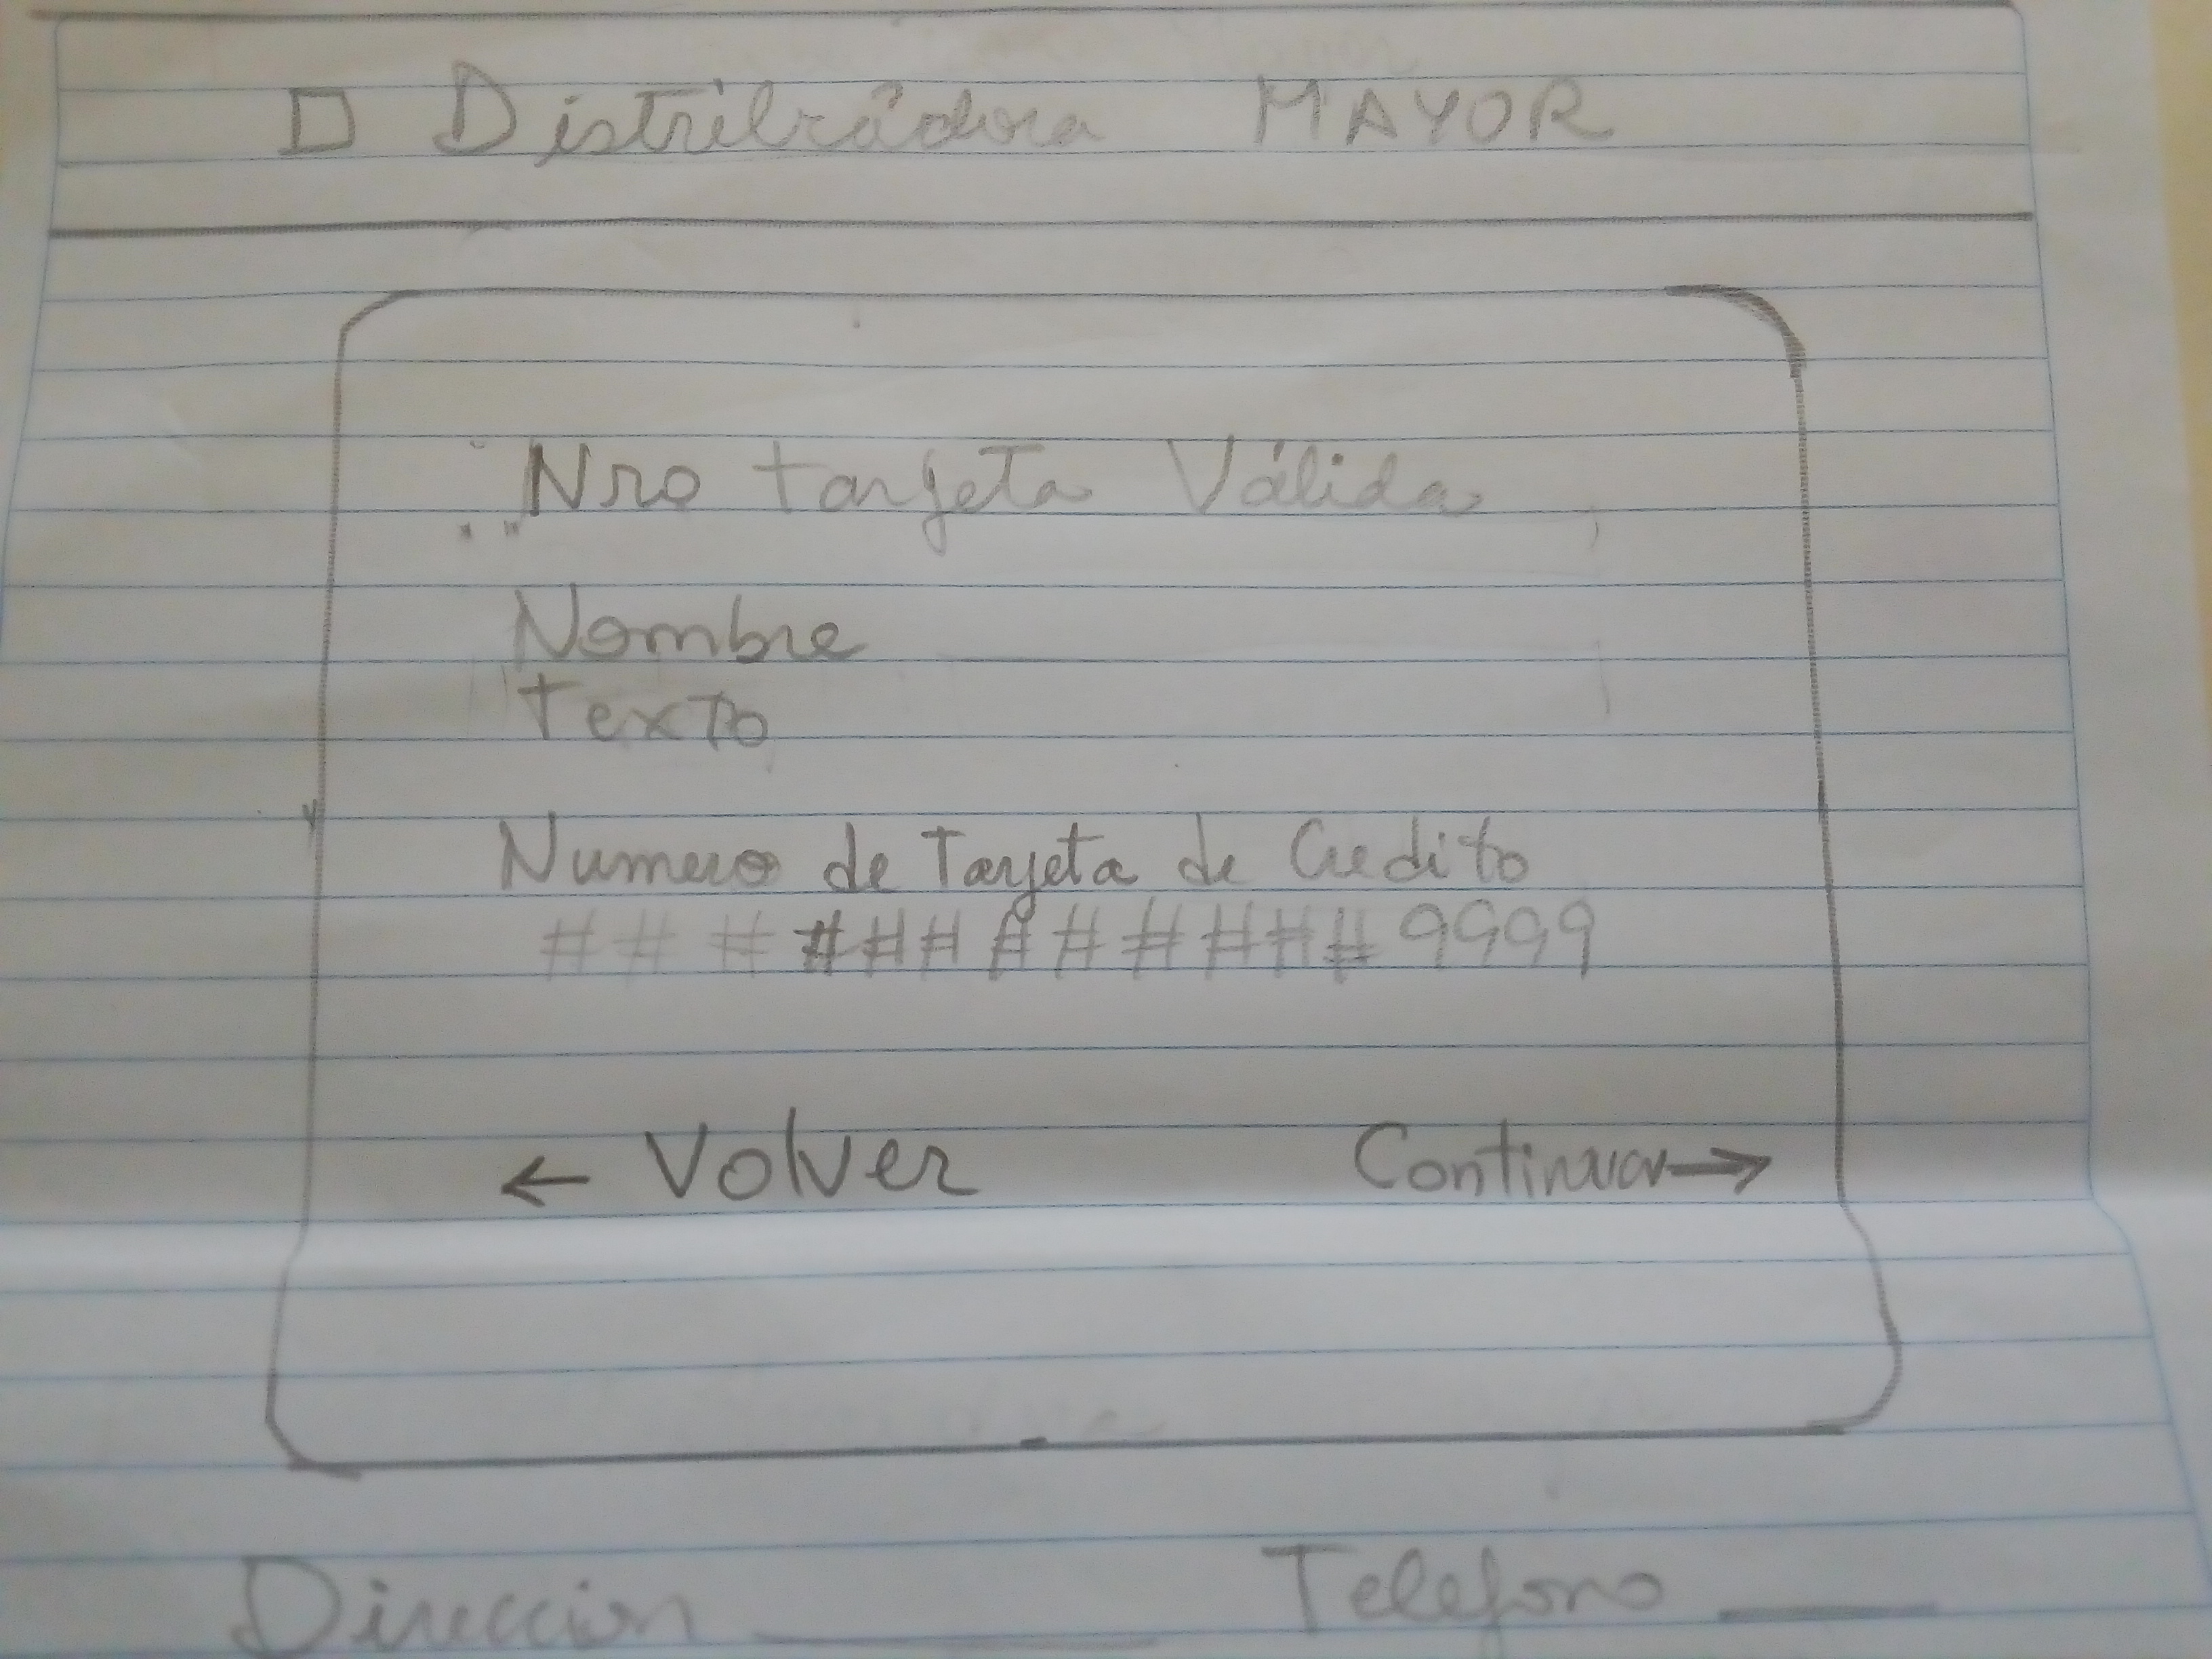 Distribuidora MAYOR
Nro tarjeta Válida
Nombre
texto
Numero de Tarjeta de Credito
############9999
← Volver Continuar →
Direccion ______ Telefono ______